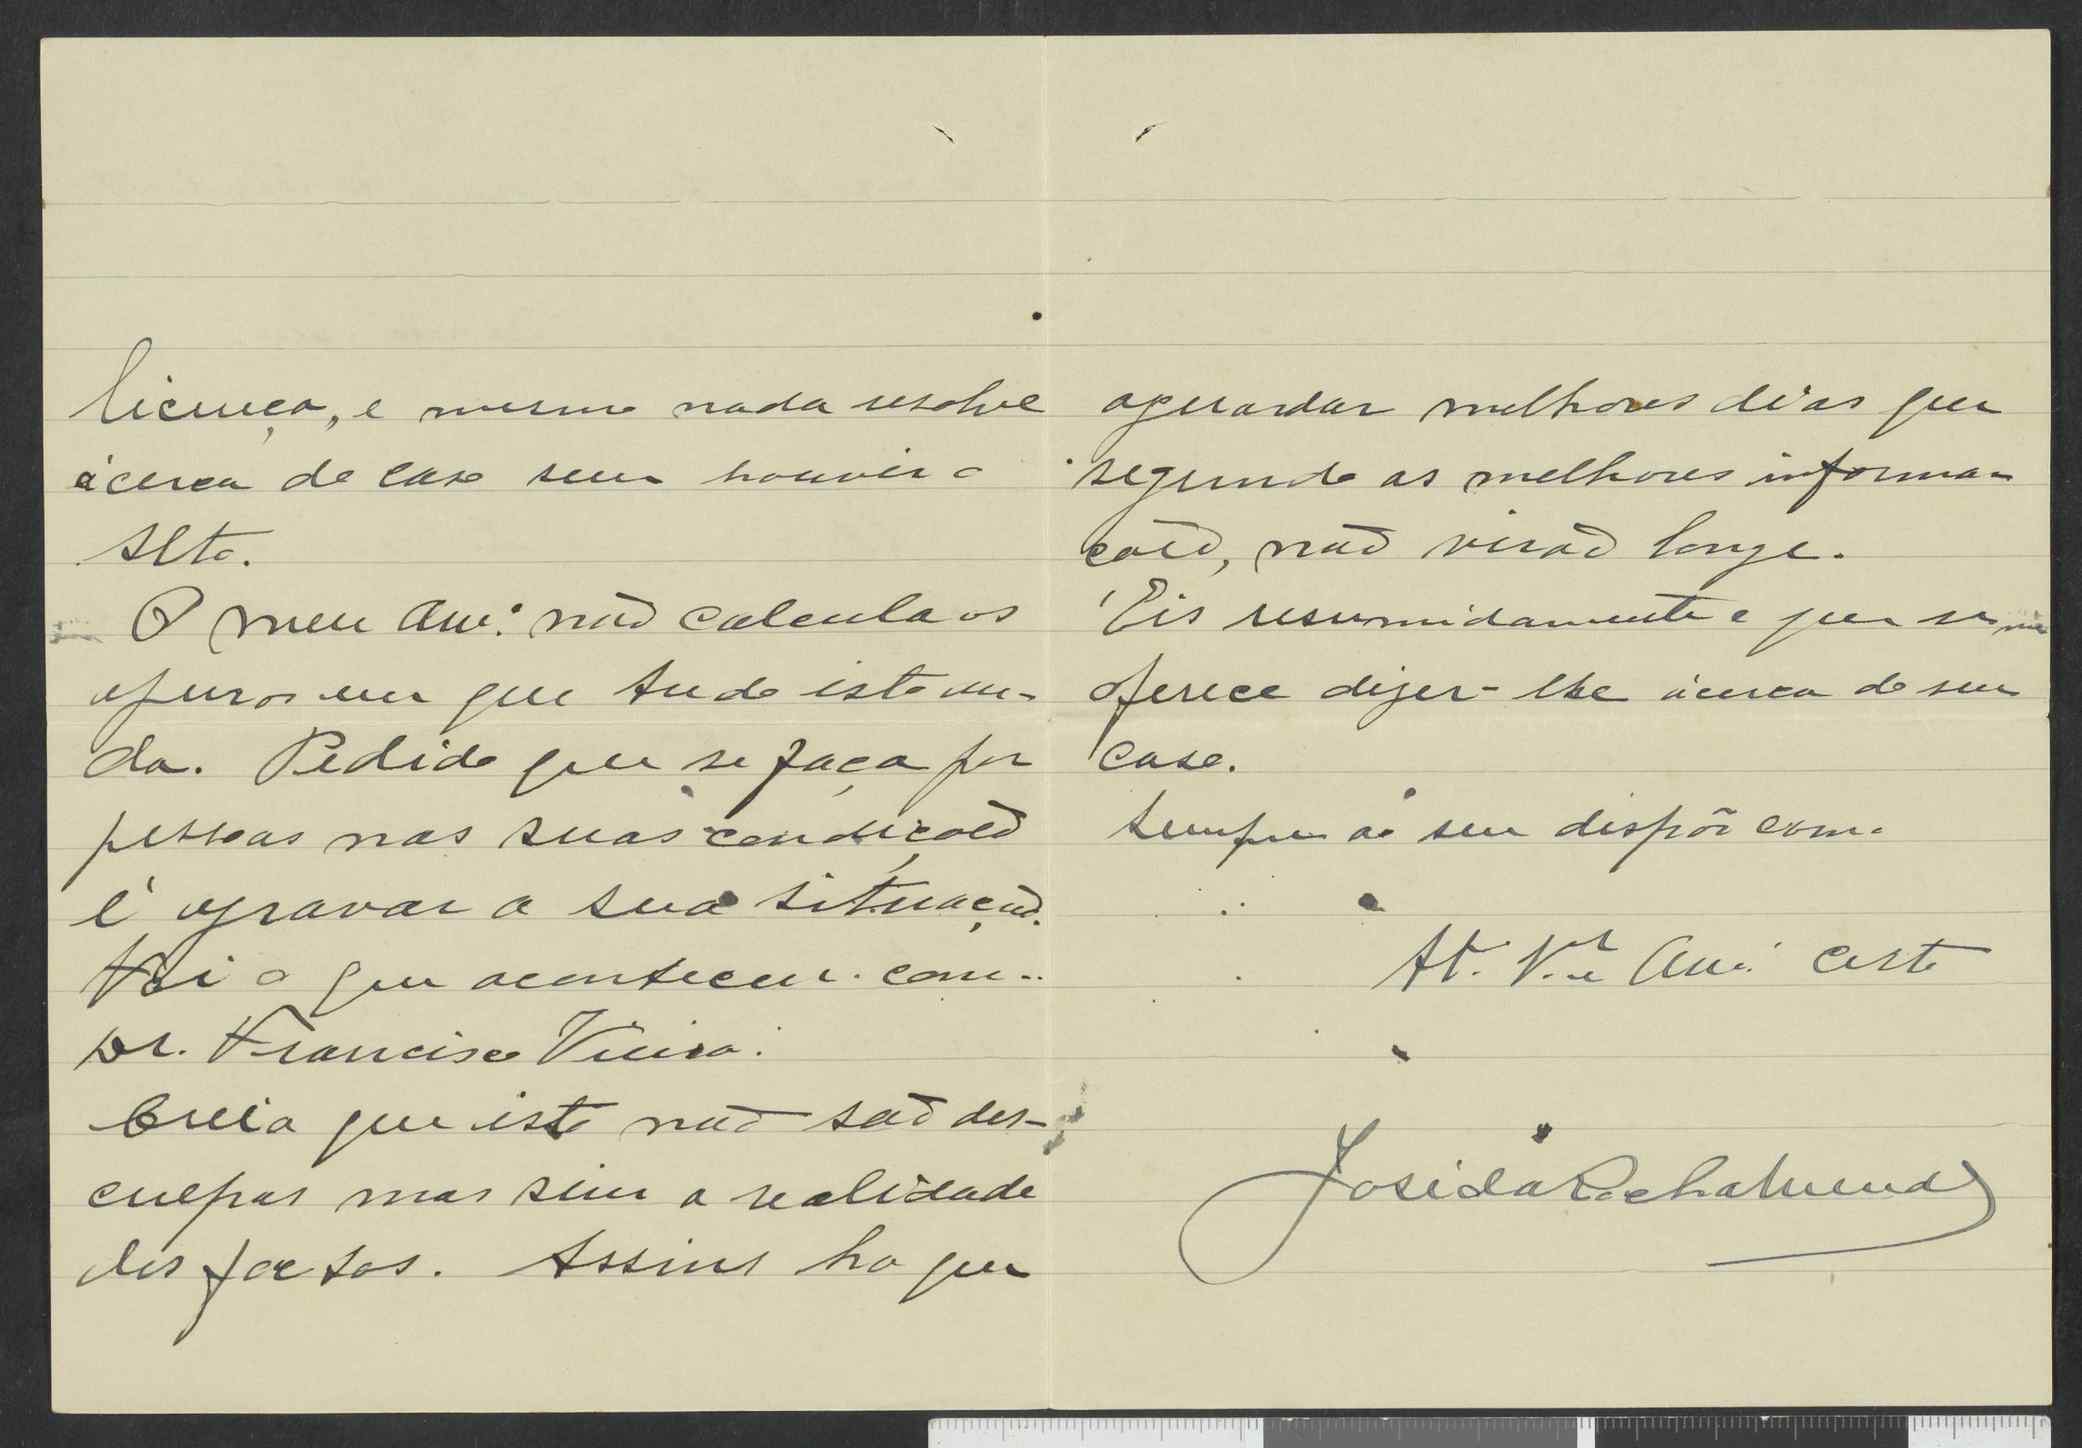 licença, e mesmo nada resolve
ácerca do caso sem houvir o
Alto.
O meu Amº. não calcula os
apuros em que tudo isto an-
da. Pedido que se faça por
pessoas nas suas condiçoẽs
é agravar a sua situação.
Foi o que aconteceu com o
Dr. Francisco Vieira.
Creia que isto não são des-
culpas mas sim a realidade
dos factos. Assim ha que
aguardar melhores dias que
segundo as melhores informa-
coẽs, não virão longe.
Eis resumidamente o que se me
oferece dizer-lhe ácerca do seu
caso.
Sempre ao seu dispôr como
At. V.or Amº. certo
José da Rocha